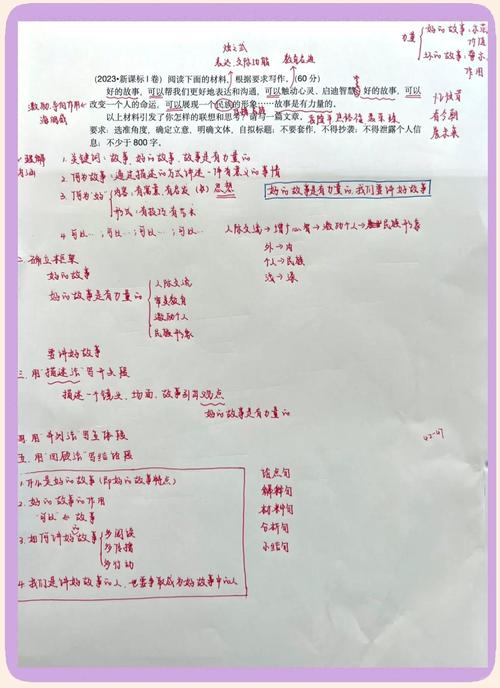 好的故事:示范
力量
价值
坏的故事:警示
作用
表达、交际功能
教育意义
(2023•新课标I卷)阅读下面的材料,根据要求写作。(60分)
好的故事,可以帮我们更好地表达和沟通,可以触动心灵、启迪智慧;好的故事,可以
改变一个人的命运,可以展现一个民族的形象……故事是有力量的。
以上材料引发了你怎样的联想和思考?请写一篇文章。
要求:选准角度,确定立意,明确文体,自拟标题;不要套作,不得抄袭;不得泄露个人信
息;不少于800字。
看今朝
展未来
1. 关键词:故事 好的故事、故事是有力量的
2. 何为故事:通过描述的方式讲述一件有意义的事情
3. 何为“好”
内容:有寓意、有启发(务)思想
形式:有技巧、有艺术
好的故事是有力量的,我们要讲好故事
4. 可以…;可以…;可以…;可以…
人际交流→增广心智→激励个人→民族形象
外→内
个人→民族
浅→深
二. 确立框架
好的故事
好的故事是有力量的
人际交流
审美教育
激励个人
民族形象
要讲好故事
三. 用“描述法”写开头段
描述一个镜头、场面、故事引出观点
好的故事是有力量的
四. 用“并列法”写主体段
五. 用“回硬法”写结语段
42-47
1. 什么是好的故事(即好的故事特点)
2. 好的故事的作用
“可以”的故事
3. 如何讲好故事
多阅读
多传播
多行动
4. 我们是讲好故事的人,也要争取成为好故事中的人
论点句
解释句
材料句
分析句
小结句